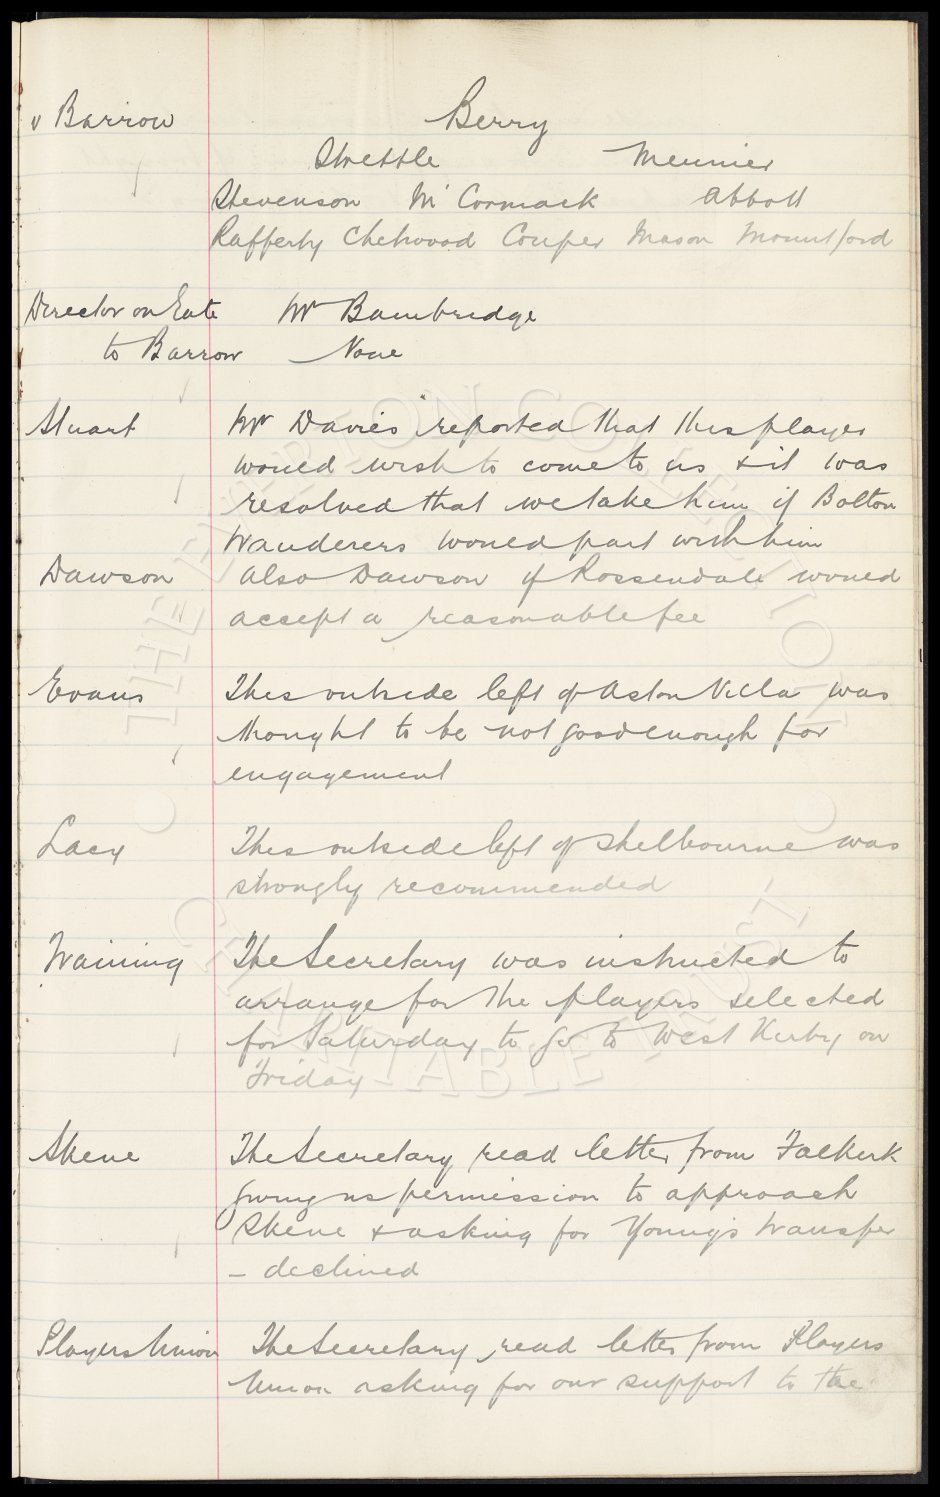 v Barrow Berry
Strettle Meunier
Stevenson McCormack Abbott
Rafferty Chetwood Couper Mason Mountford
Director on Gate Mr Bainbridge
to Barrow None
Stuart Mr Davies reported that this player
would wish to come to us & it was
resolved that we take him if Bolton
Wanderers would part with him
Dawson also Dawson if Rossendale would
accept a reasonable fee
Evans This outside left of Aston Villa was
thought to be not good enough for
engagement
Lacy This outside left of Shelbourne was
strongly recommended
Training The Secretary was instructed to
arrange for the players selected
for Saturday to go to West Kirby on
Friday
Skene The Secretary read letter from Falkirk
giving us permission to approach
Skene & asking for Young's transfer
– declined
Players Union The Secretary read letter from Players
Union asking for our support to the
THE EVERTON COLLECTION
CHARITABLE TRUST